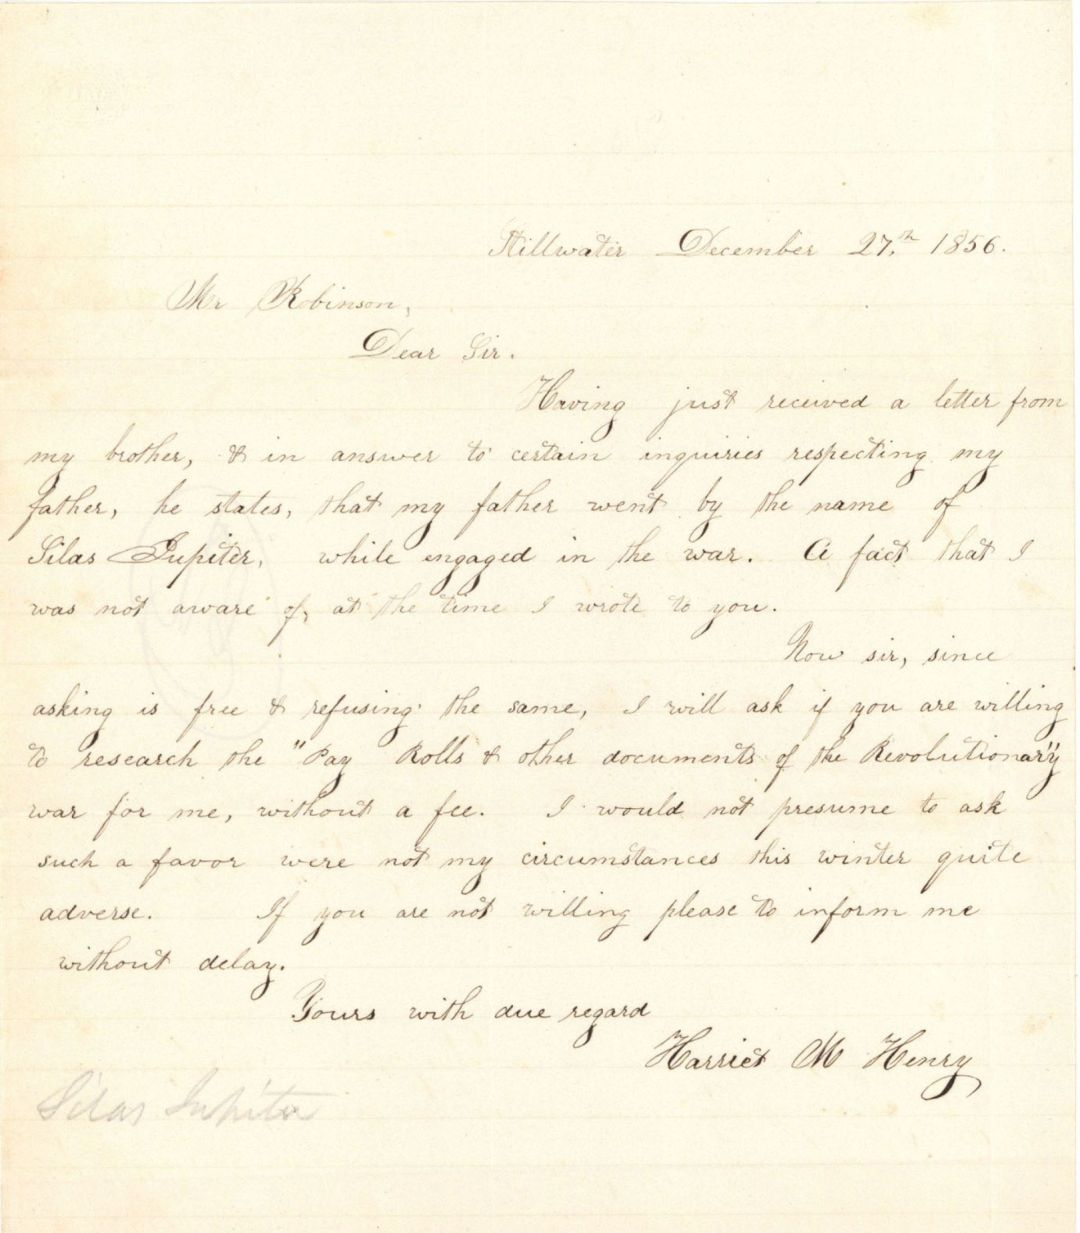 Stillwater December 27.th 1856.
Mr Robinson,
Dear Sir.
Having just received a letter from
my brother, & in answer to certain inquiries respecting my
father, he states, that my father went by the name of
Silas Jupiter, while engaged in the war. A fact that I
was not aware of, at the time I wrote to you.
Now sir, since
asking is free & refusing the same, I will ask if you are willing
to research the "Pay Rolls & other documents of the Revolutionary"
war for me, without a fee. I would not presume to ask
such a favor were not my circumstances this winter quite
adverse. If you are not willing please to inform me
without delay.
Yours with due regard
Harriet M Henry
Silas Jupiter